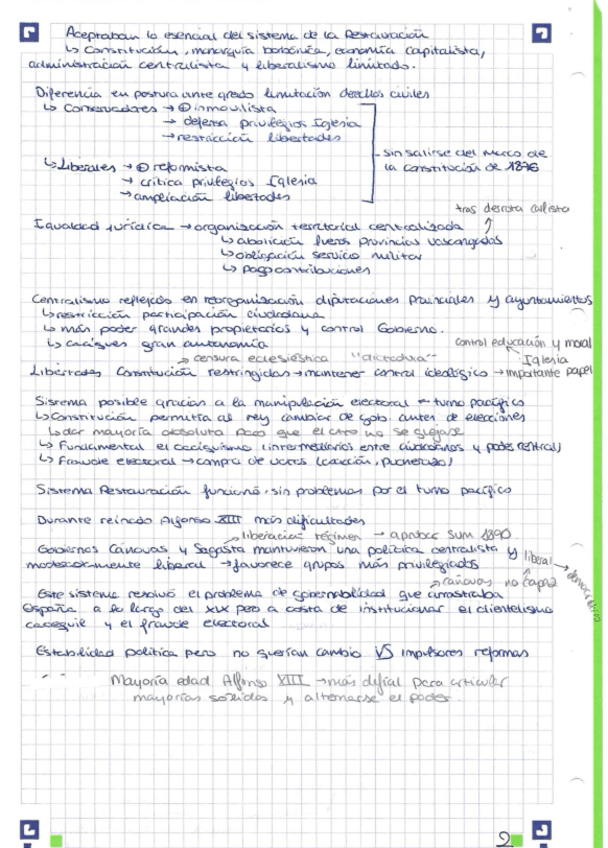 Aceptaban lo esencial del sistema de la Restauración
↳ Constitución, monarquía borbónica, economía capitalista,
administración centralista y liberalismo limitado.
Diferencia en postura ante grado limitación derechos civiles
↳ Conservadores → ⊕ inmovilista
→ defensa privilegios Iglesia
→ restricción libertades
sin salirse del marco de
la constitución de 1876
↳ Liberales → ⊕ reformista
→ crítica privilegios Iglesia
→ ampliación libertades
tras derrota carlista
Igualdad jurídica → organización territorial centralizada
↳ abolición fueros provincias vascongadas
↳ obligación servicio militar
↳ pago contribuciones
Centralismo reflejado en reorganización diputaciones provinciales y ayuntamientos
↳ restricción participación ciudadana
↳ más poder grandes propietarios y control Gobierno.
↳ caciques gran autonomía
control educación y moral
→ censura eclesiástica "dictadura"
Iglesia
Libertades Constitución restringidas → mantener control ideológico → importante papel
Sistema posible gracias a la manipulación electoral – turno pacífico
↳ Constitución permitía al rey cambiar de gob. antes de elecciones
↳ dar mayoría absoluta para que el otro no se quejase
↳ Fundamental el caciquismo (intermediarios entre ciudadanos y poder central)
↳ Fraude electoral → compra de votos (coacción, pucherazo)
Sistema Restauración funcionó sin problemas por el turno pacífico
Durante reinado Alfonso XIII más dificultades
liberación régimen → aprobar sum 1890
Gobiernos Cánovas y Sagasta mantuvieron una política centralista y
liberal → democrático
moderadamente liberal → favorece grupos más privilegiados
→ Cánovas no capaz
Este sistema resolvió el problema de gobernabilidad que arrastraba
España a lo largo del XIX pero a costa de institucionar el clientelismo
caciquil y el fraude electoral
Estabilidad política pero no querían cambio VS impulsores reformas
Mayoría edad Alfonso XIII → más difícil para articular
mayorías sólidas y alternarse el poder.
2